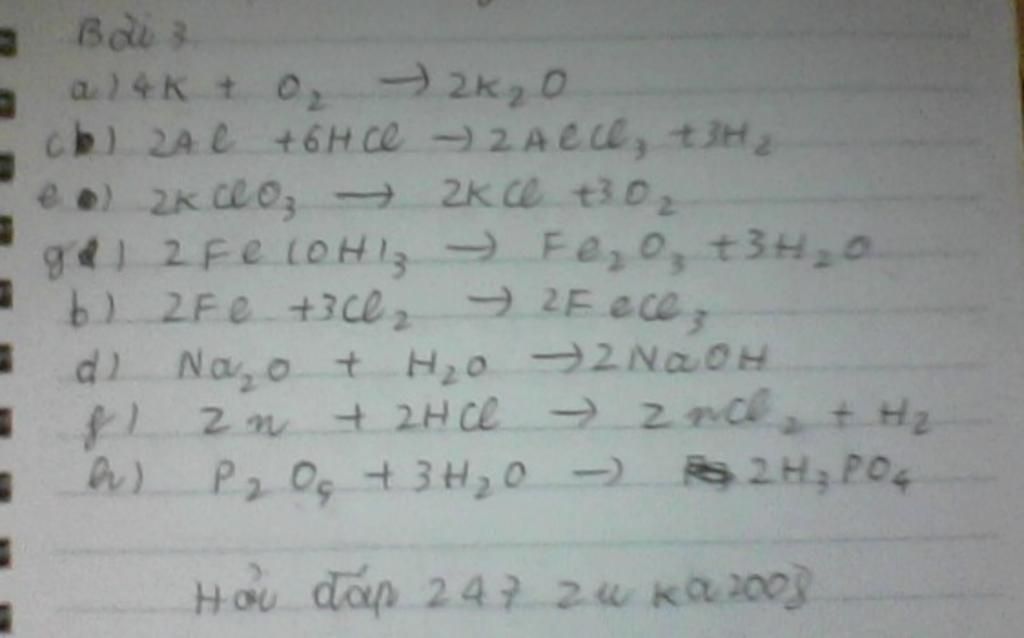 Bài 3
a) 4K + O₂ → 2K₂O
c b) 2Al + 6HCl → 2AlCl₃ + 3H₂
e c) 2KClO₃ → 2KCl + 3O₂
g d) 2Fe(OH)₃ → Fe₂O₃ + 3H₂O
b) 2Fe + 3Cl₂ → 2FeCl₃
d) Na₂O + H₂O → 2NaOH
f) Zn + 2HCl → ZnCl₂ + H₂
h) P₂O₅ + 3H₂O → 2H₃PO₄
Hỏi đáp 247 zukazoo8